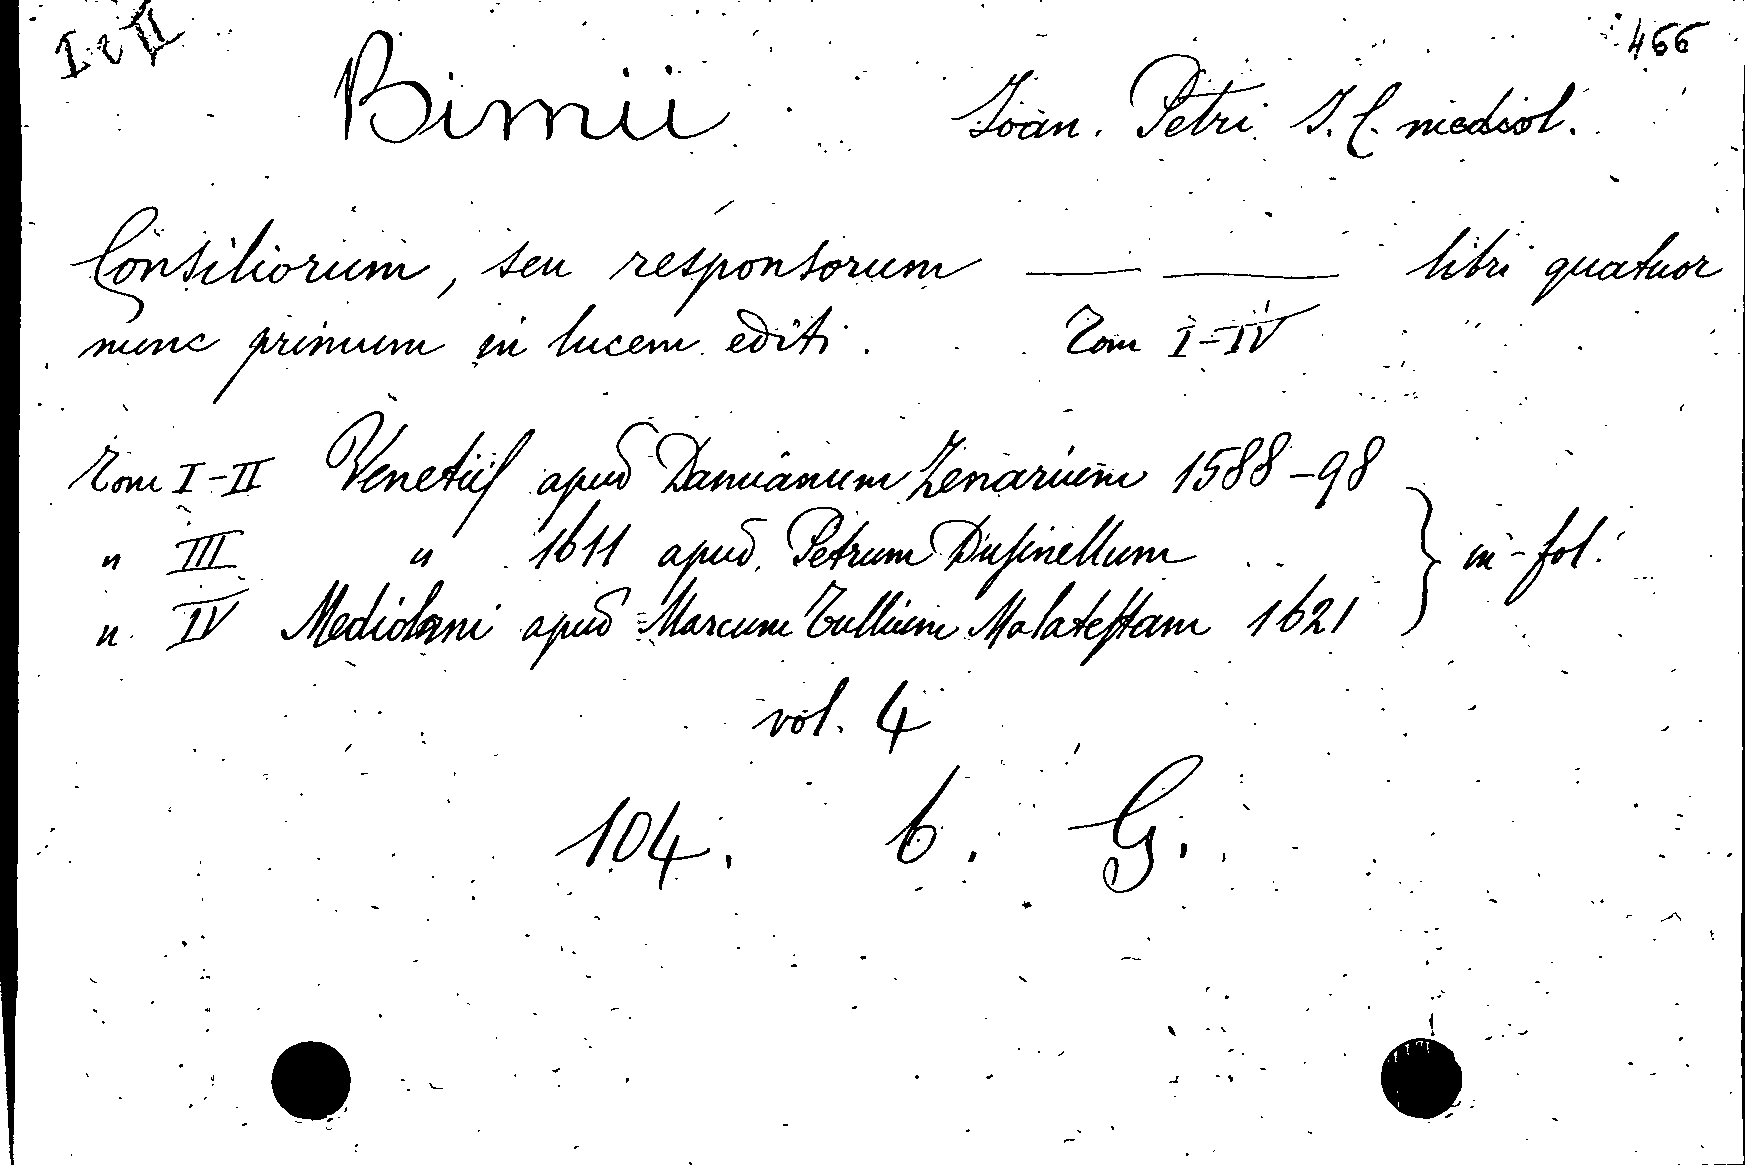 I e II
466
Bimii Joan. Petri J. C. mediol.
Consiliorum, seu responsorum — — libri quatuor
nunc primum in lucem editi. Tom I-IV
Tom I-II Venetiis apud Damianum Zenarium 1588-98
" III " 1611 apud Petrum Dusinellum
" IV Mediolani apud Marcum Tullium Malatestam 1621
in-fol.
vol. 4
104. b. G.